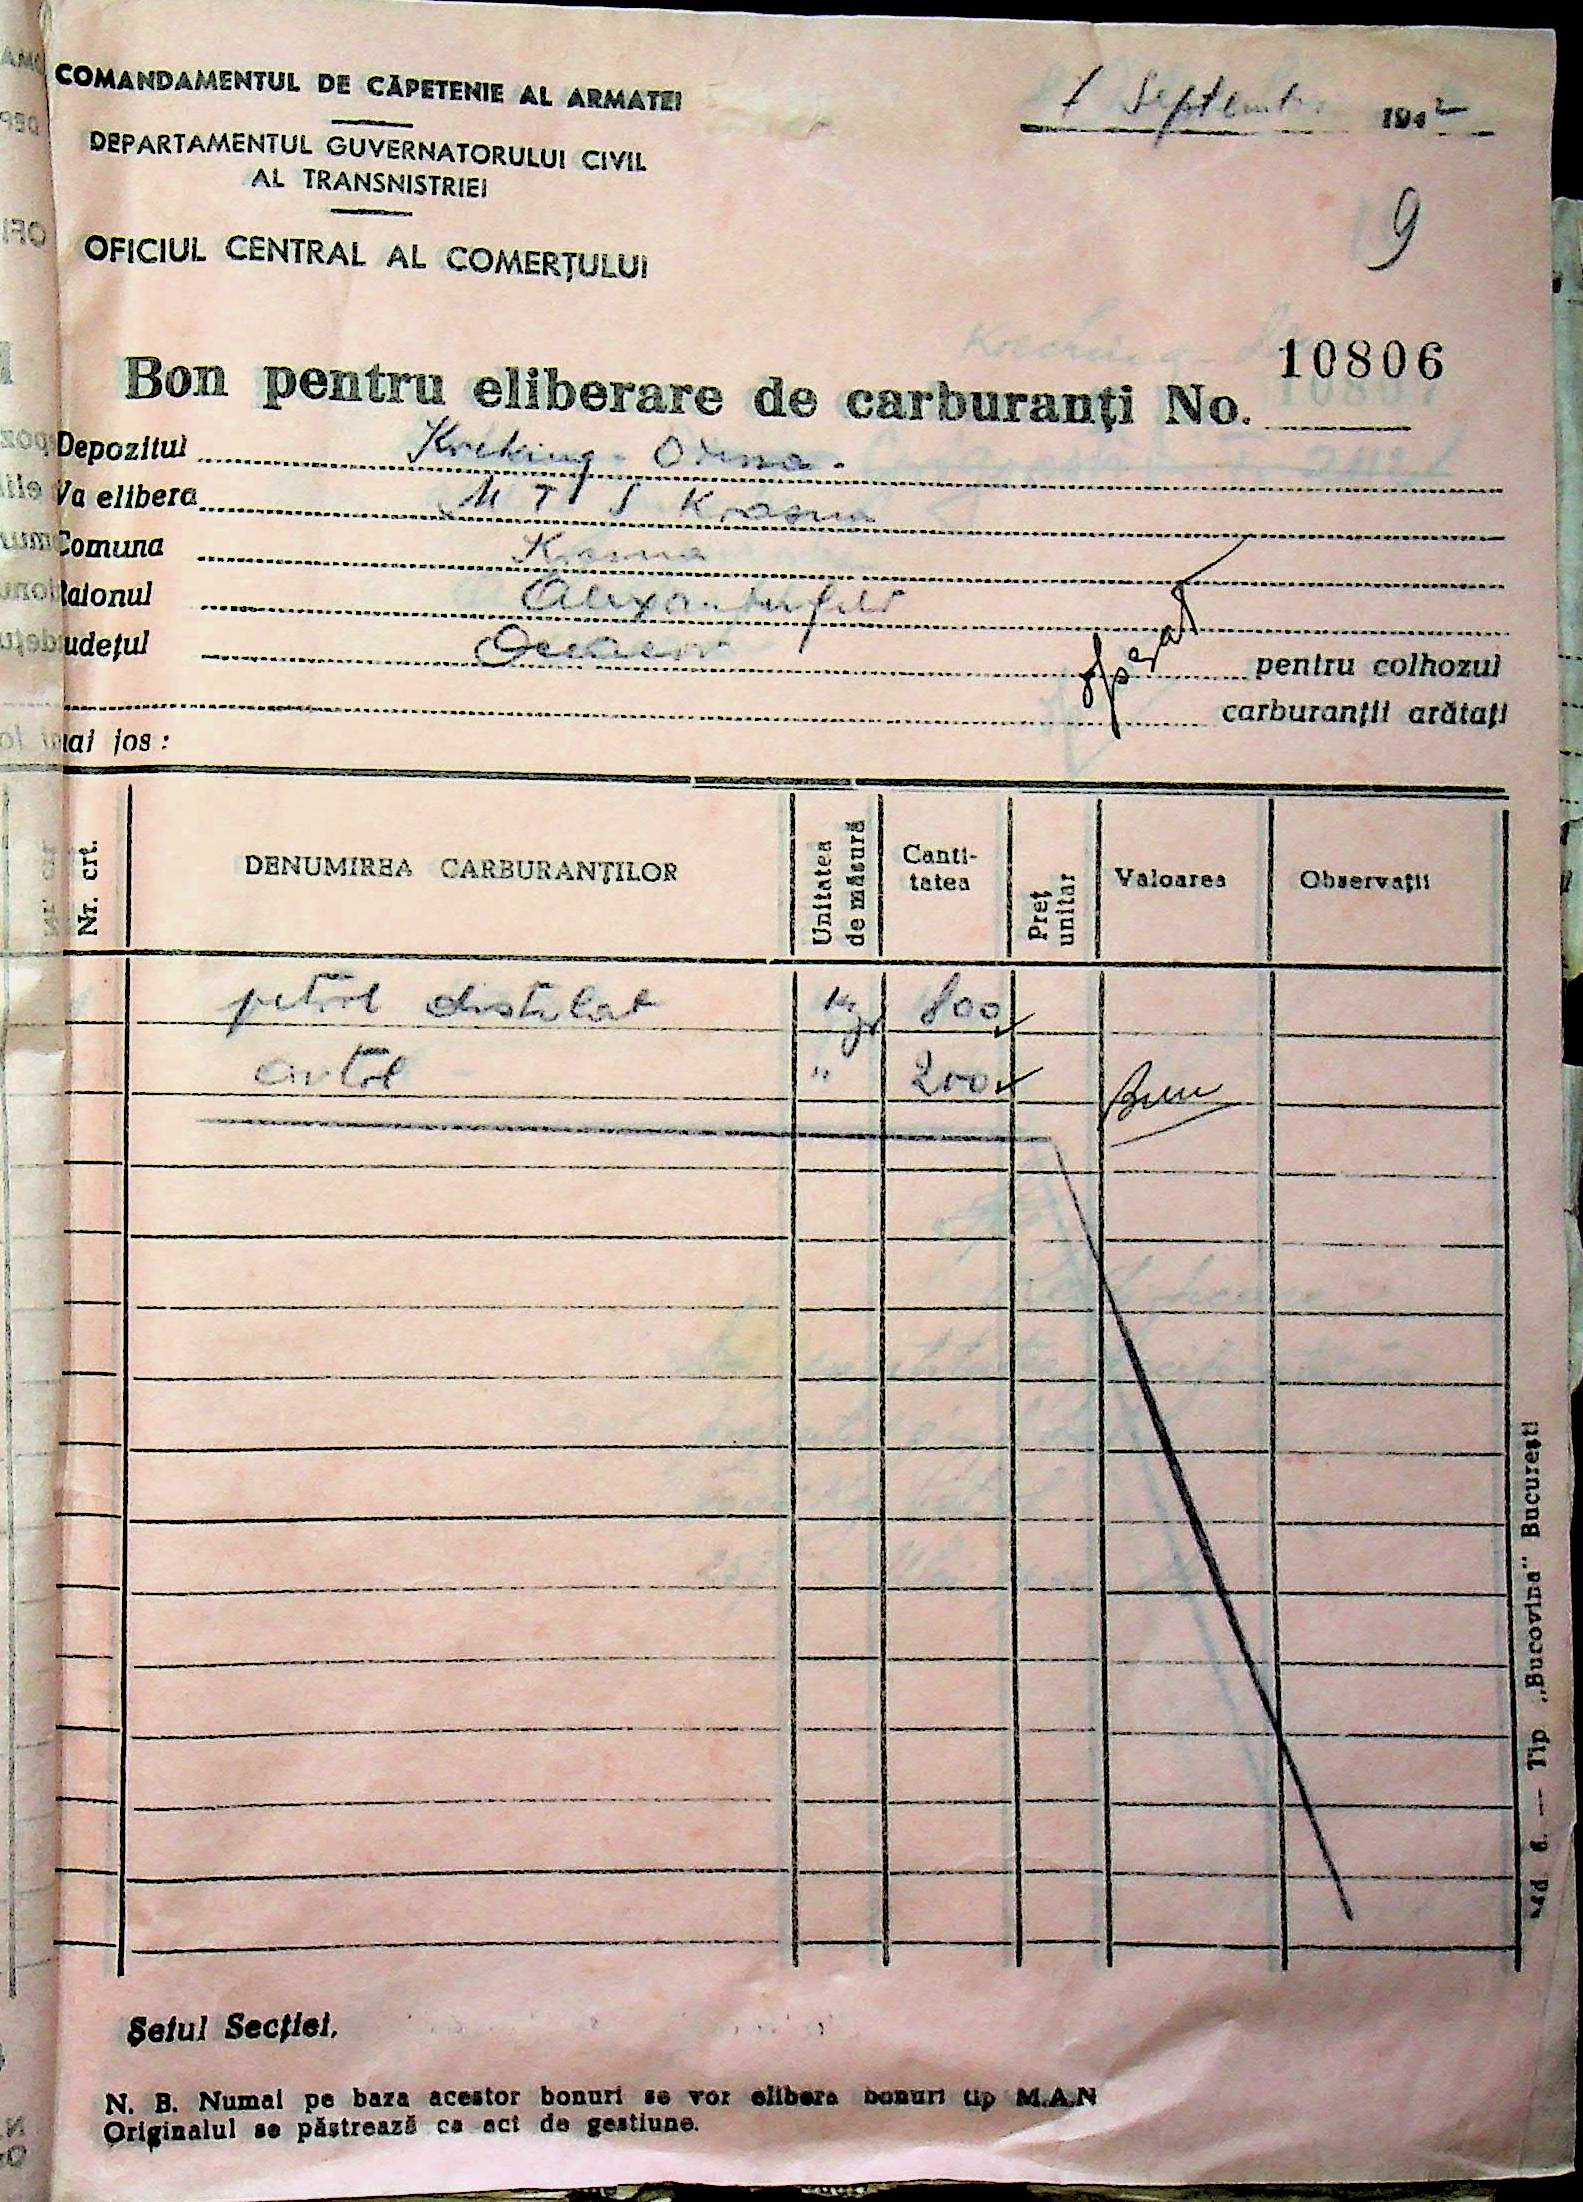 COMANDAMENTUL DE CĂPETENIE AL ARMATEI
DEPARTAMENTUL GUVERNATORULUI CIVIL
AL TRANSNISTRIEI
OFICIUL CENTRAL AL COMERȚULUI
7 Septembrie 1942
9
Bon pentru eliberare de carburanți No. 10806
Depozitul Kreking - Odessa -
Va elibera M T S Krasna
Comuna Krasna
Raionul Alexanderfeld
Județul Oceacov pentru colhozul
operat
carburanții arătați
mai jos:
Nr. crt. DENUMIREA CARBURANȚILOR Unitatea de măsură Canti-tatea Preț unitar Valoarea Observații
petrol distilat kgr 800
avtol " 200
Șeful Secției,
N. B. Numai pe baza acestor bonuri se vor elibera bonuri tip M.A.N
Originalul se păstrează ca act de gestiune.
Md. 6. — Tip „Bucovina" București